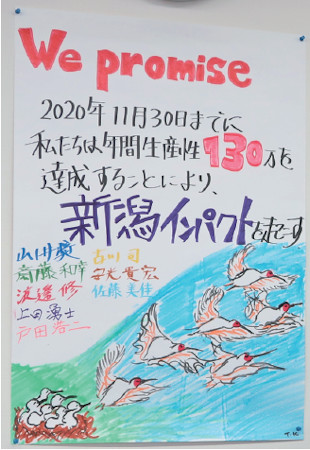 We promise
2020年11月30日までに
私たちは年間生産性130万を
達成することにより、
新潟インパクトを起こす
山川 古川 司
斎藤 和 安光 寛宏
渡邉 修 佐藤 美佳
上田 勇士
戸田 浩二
T.K